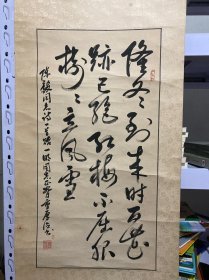 隆冬到来时百花
跡已绝红梅不屈服
樹々立风雪
陈毅同志诗一首